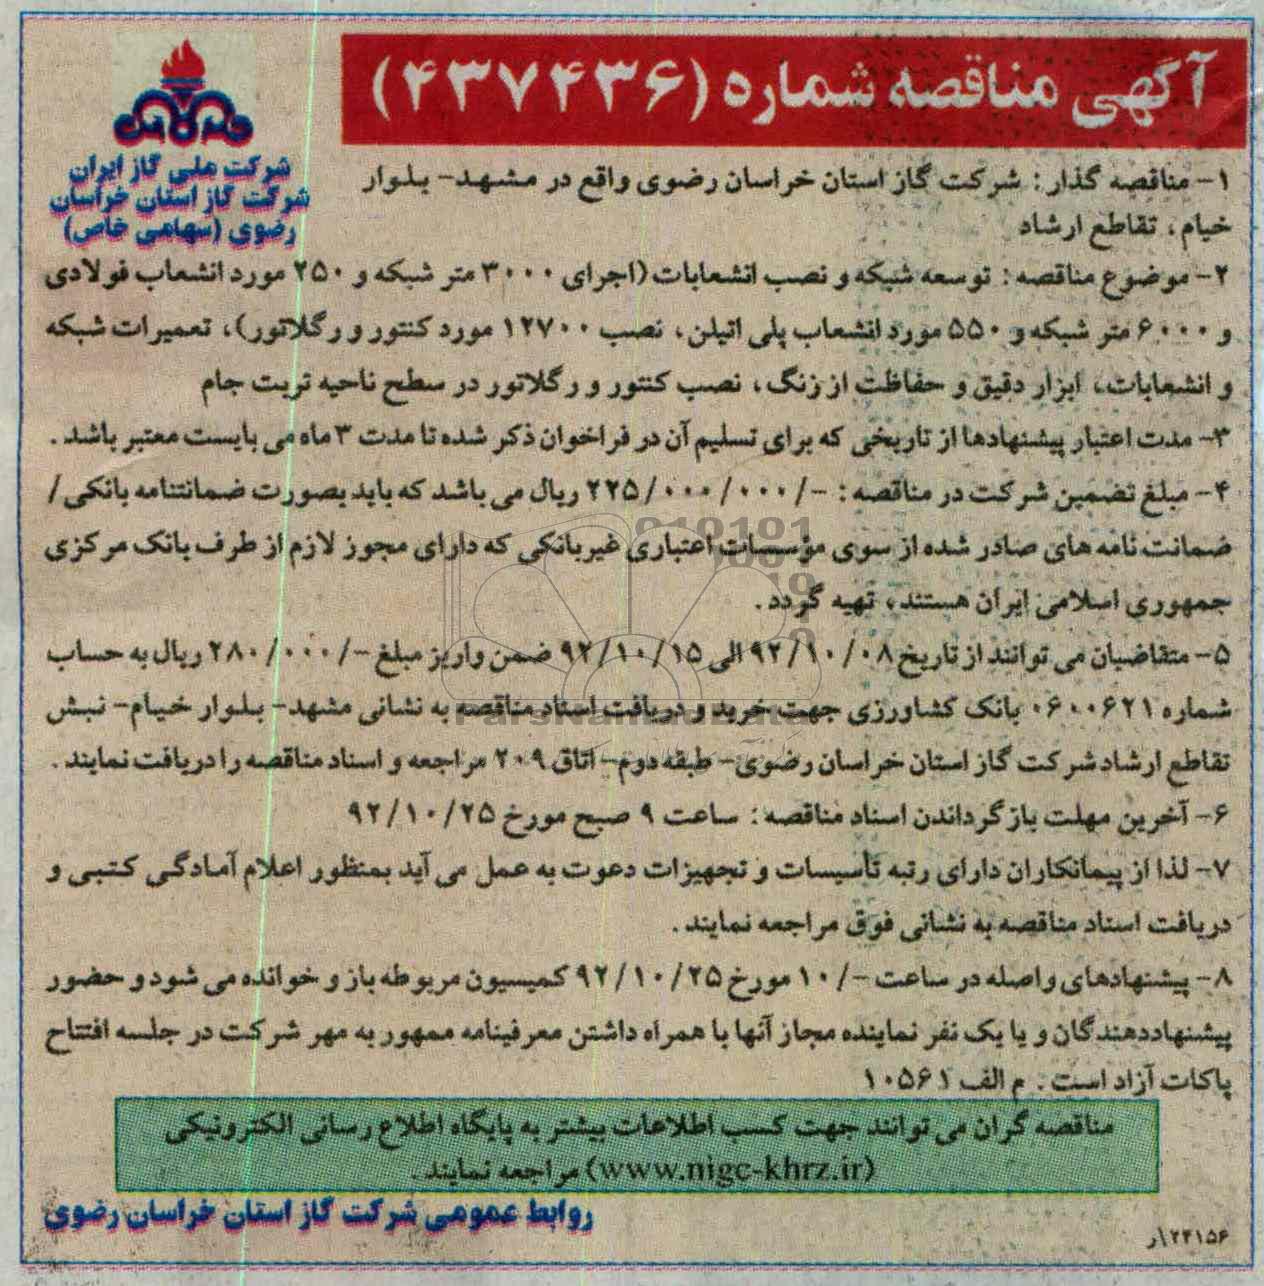 آگهی مناقصه شماره (۴۳۷۴۳۶)
شرکت ملی گاز ایران
شرکت گاز استان خراسان
رضوی (سهامی خاص)
۱- مناقصه گذار: شرکت گاز استان خراسان رضوی واقع در مشهد- بلوار
خیام، تقاطع ارشاد
۲- موضوع مناقصه: توسعه شبکه و نصب انشعابات (اجرای ۳۰۰۰ متر شبکه و ۲۵۰ مورد انشعاب فولادی
و ۶۰۰۰ متر شبکه و ۵۵۰ مورد انشعاب پلی اتیلن، نصب ۱۲۷۰۰ مورد کنتور و رگلاتور)، تعمیرات شبکه
و انشعابات، ابزار دقیق و حفاظت از زنگ، نصب کنتور و رگلاتور در سطح ناحیه تربت جام
۳- مدت اعتبار پیشنهادها از تاریخی که برای تسلیم آن در فراخوان ذکر شده تا مدت ۳ ماه می بایست معتبر باشد.
۴- مبلغ تضمین شرکت در مناقصه: -/۲۲۵/۰۰۰/۰۰۰ ریال می باشد که باید بصورت ضمانتنامه بانکی/
ضمانت نامه های صادر شده از سوی مؤسسات اعتباری غیربانکی که دارای مجوز لازم از طرف بانک مرکزی
جمهوری اسلامی ایران هستند، تهیه گردد.
۵- متقاضیان می توانند از تاریخ ۹۲/۱۰/۰۸ الی ۹۲/۱۰/۱۵ ضمن واریز مبلغ -/۲۸۰/۰۰۰ ریال به حساب
شماره ۰۶۰۰۶۲۱ بانک کشاورزی جهت خرید و دریافت اسناد مناقصه به نشانی مشهد- بلوار خیام- نبش
تقاطع ارشاد شرکت گاز استان خراسان رضوی- طبقه دوم- اتاق ۲۰۹ مراجعه و اسناد مناقصه را دریافت نمایند.
۶- آخرین مهلت بازگرداندن اسناد مناقصه: ساعت ۹ صبح مورخ ۹۲/۱۰/۲۵
۷- لذا از پیمانکاران دارای رتبه تأسیسات و تجهیزات دعوت به عمل می آید بمنظور اعلام آمادگی کتبی و
دریافت اسناد مناقصه به نشانی فوق مراجعه نمایند.
۸- پیشنهادهای واصله در ساعت -/۱۰ مورخ ۹۲/۱۰/۲۵ کمیسیون مربوطه باز و خوانده می شود و حضور
پیشنهاددهندگان و یا یک نفر نماینده مجاز آنها با همراه داشتن معرفینامه ممهور به مهر شرکت در جلسه افتتاح
پاکات آزاد است. م الف ۱۰۵۶۱
مناقصه گران می توانند جهت کسب اطلاعات بیشتر به پایگاه اطلاع رسانی الکترونیکی
(www.nigc-khrz.ir) مراجعه نمایند.
روابط عمومی شرکت گاز استان خراسان رضوی
۲۴۱۵۶\ر